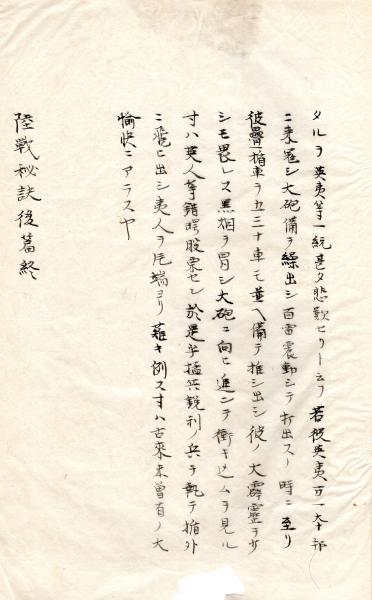 タルヲ英夷等一統甚タ悲歎セリト云フ若彼英夷百一大十部
ニ来冦シ大砲備ヲ繰出シ百雷震動シテ打出スノ時ニ至リ
彼疊楯車ヲ五三十車モ並ヘ備テ推シ出シ彼ノ大霹靂ヲ少
シモ畏レス黒烟ヲ冒シ大砲ニ向ヒ進ンテ衝キ込ムヲ見ル
寸ハ英人等錯愕股栗セン於是乎猛兵鋭利ノ兵ヲ執テ楯外
ニ飛ヒ出シ夷人ヲ片端ヨリ薙キ倒ス寸ハ古來未曾有ノ大
愉快ニアラスヤ
陸戰秘訣後篇終